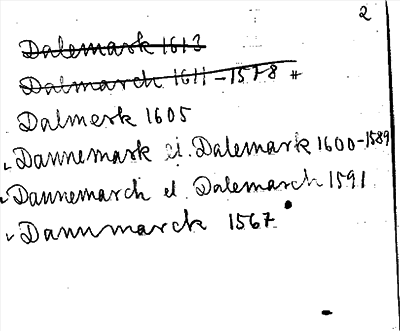 2
Dalemark 1613
Dalmarch 1611-1578 #
Dalmerk 1605
Dannemark el. Dalemark 1600-1589
Dannemarch el. Dalemarch 1591
Dannmarck 1567